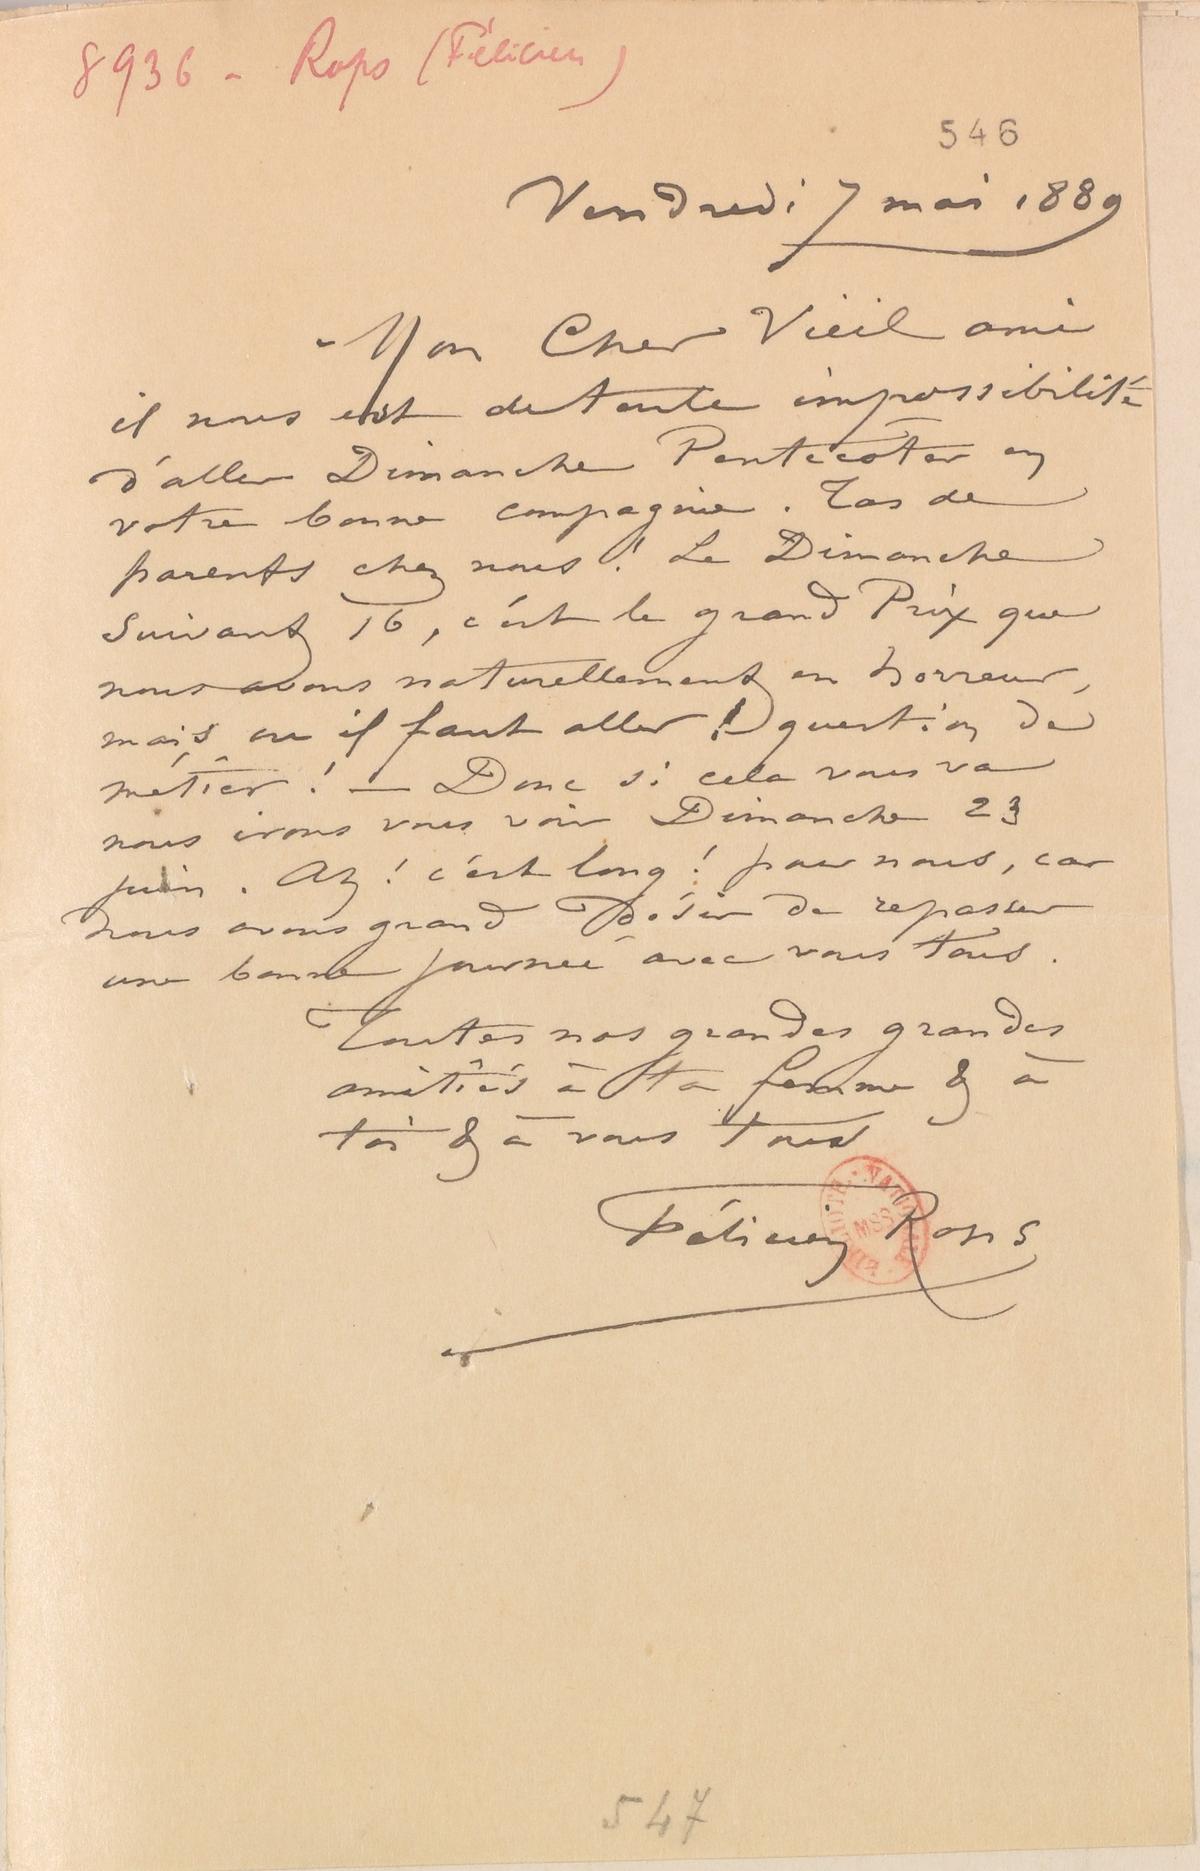 8936 - Rops (Félicien)
546
Vendredi 7 mai 1889
- Mon Cher Vieil ami
il nous est de toute impossibilité
d'aller Dimanche Pentecôter en
votre bonne compagnie. Tas de
parents chez nous ! Le Dimanche
suivant 16, c'est le grand Prix que
nous avons naturellement en horreur,
mais ou il faut aller ! question de
métier ! — Donc si cela vous va
nous irons vous voir Dimanche 23
juin. Ah ! c'est long ! pour nous, car
nous avons grand Désir de repasser
une bonne journée avec vous tous.
Toutes nos grandes grandes
amitiés à ta femme & à
toi & à vous tous
Félicien Rops
BIBLIOTH. NATIONALE
MSS
547